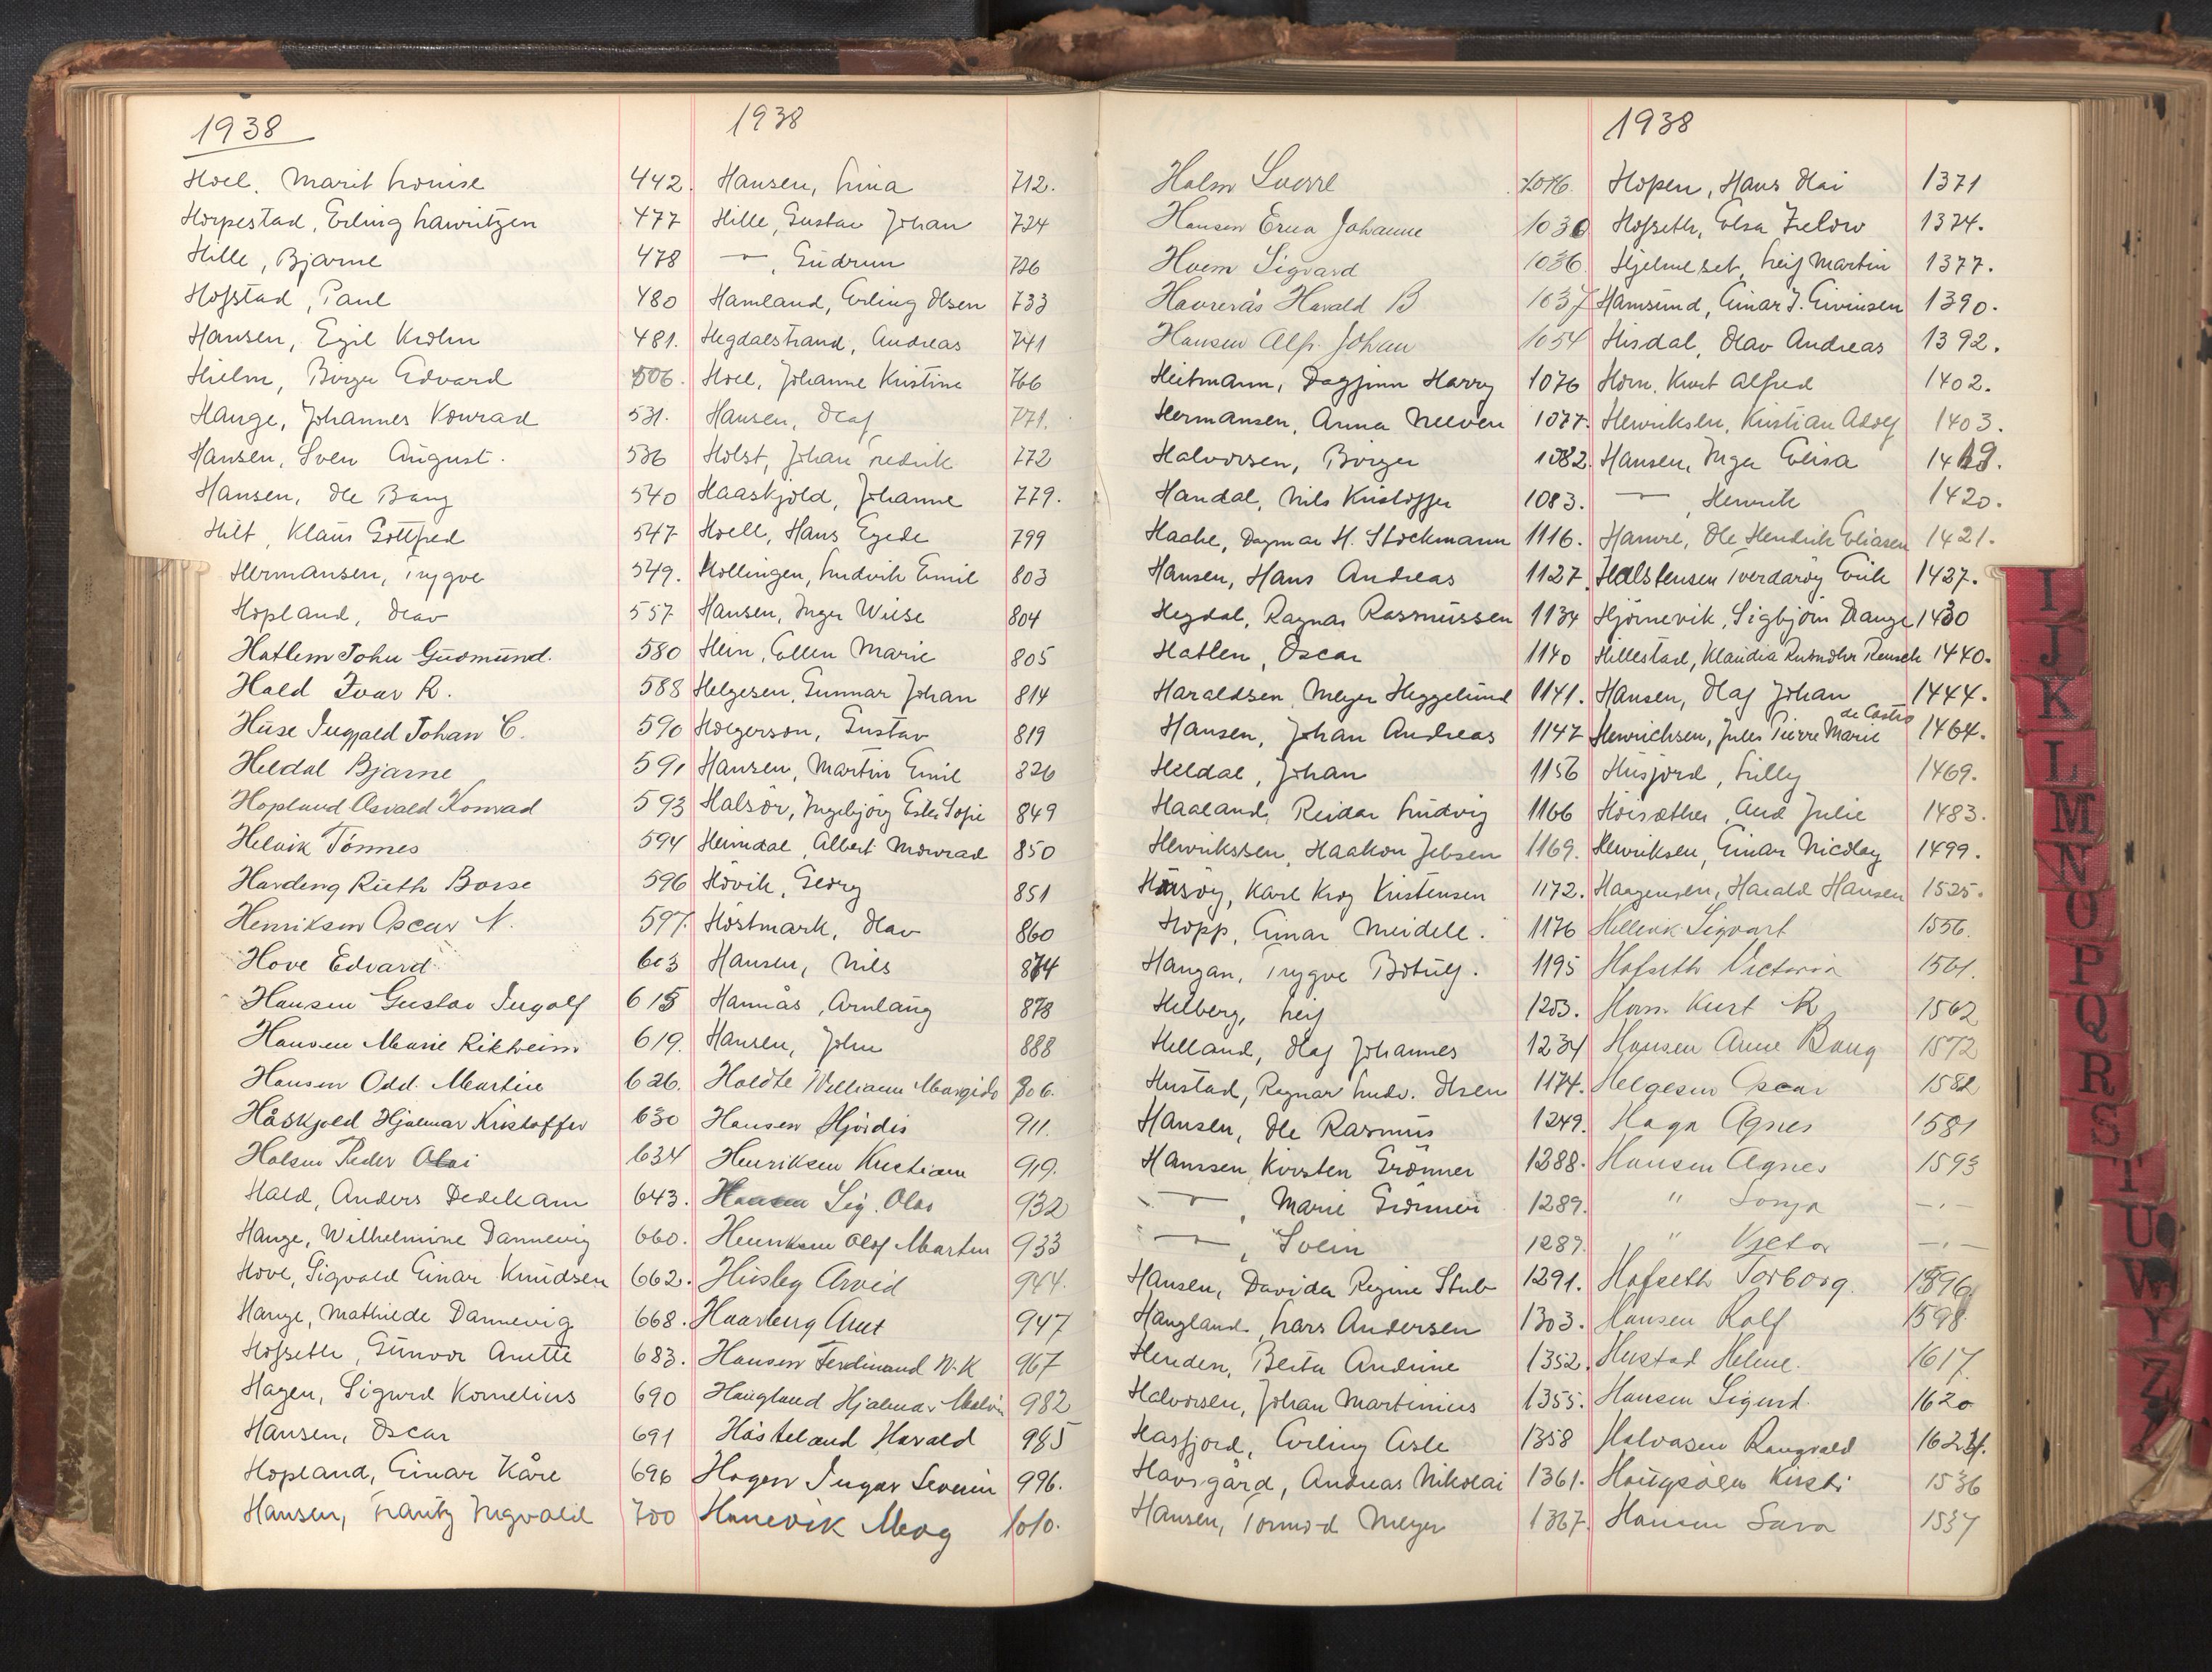 1938
Hoel, Marit Louise 442.
Horpestad, Erling Lauritzen 477
Hille, Bjarne 478
Hofstad, Paul 480
Hansen, Egil Krohn 481.
Hielm, Borger Edvard 506.
Hauge, Johannes Konrad 531.
Hansen, Sven August. 536
Hansen, Ole Bang 540
Hilt, Klaus Gottfred 547
Hermansen, Trygve 549.
Hopland, Olav 557
Hatlem John Gudmund. 580
Hald Ivar R. 588
Huse Ingvald Johan C. 590
Heldal Bjarne 591
Hopland Osvald Konrad 593
Helvik Tönnes 594
Harding Ruth Borse 596
Henriksen Oscar N. 597.
Hove Edvard 603
Hansen Gustav Ingolf 615
Hansen Marie Rikheim 619.
Hansen Odd Martin 626.
Håskjold Hjalmar Kristoffer 630
Holsen Peder Olai 634
Hald, Anders Dedekam 643.
Hauge, Wilhelmine Dannevig 660.
Hove, Sigvald Einar Knudsen 662.
Hauge, Mathilde Dannevig 668.
Hofseth, Gunvor Anette 683.
Hagen, Sigurd Kornelius 690
Hansen, Oscar 691
Hopland, Einar Kåre 696
Hansen, Frantz Ingvald 700
1938
Hansen, Lina 712.
Hille, Gustav Johan 724
— , Gudrun 726
Hamland, Erling Olsen 733
Hegdalstrand, Andreas 741
Hoel, Johanne Kristine 766
Hansen, Olaf 771.
Holst, Johan Fredrik 772
Haaskjold, Johanne 779.
Hoell, Hans Egede 799
Hollingen, Ludvik Emil 803
Hansen, Inger Wiese 804
Hein, Ellen Marie 805
Helgesen, Gunnar Johan 814
Holgerson, Gustav 819
Hansen, Martin Emil 826
Halsör, Ingebjörg Ester Sofie 849
Heimdal, Albert Monrad 850
Hövik, Georg 851
Höstmark, Olav 860
Hansen, Nils 874
Hannås, Arnlaug 878
Hansen, John 888
Holdte William Margido 906.
Hansen Hjördis 911.
Henriksen Kristian 919.
Hansen Sig. Olav 932
Henriksen Olof Martin 933
Husby Arvid 944.
Haarberg Anet 947
Hansen Ferdinand W.K 967
Haugland Hjalmar Malvin 982
Håsteland Harald 985
Hagen Ingar Severin 996.
Hanevik Mog 1010.
Holm Sverre 1016.
Hansen Erna Johanne 1030
Hoem Sigvard 1036.
Havrerås Harald B 1037
Hansen Alf. Johan 1054
Heitmann, Dagfinn Harry 1076
Hermansen, Anna Neeven 1077.
Halvorsen, Borger 1082.
Handal, Nils Kristoffer 1083.
Haake, Dagmar H. Stockmann 1116.
Hansen, Hans Andreas 1127.
Hegdal, Ragnar Rasmussen 1134
Hatlen, Oscar 1140
Haraldsen, Meyer Heggelund 1141.
Hansen, Johan Andreas 1147
Heldal, Johan 1156
Haaland, Reidar Ludvig 1166
Henrikssen, Haakon Jebsen 1169.
Håsöy, Karl Krog Kristensen 1172.
Hopp, Einar Meidell. 1176
Haugan, Trygve Botulf. 1195
Helberg, Leif 1203.
Helland, Olaf Johannes 1234
Hustad, Ragnar Ludv. Olsen 1174.
Hansen, Ole Rasmus 1249.
Hanssen, Kirsten Grönner 1288.
— , Marie Grönner 1289.
— , Svein 1289.
Hansen, Davida Regine Stub 1291.
Haugland, Lars Andersen 1303.
Henden, Berta Andrine 1352.
Halvorsen, Johan Martinius 1355.
Hasfjord, Erling Asle 1358
Havsgård, Andreas Nikolai 1361.
Hansen, Tormod Meyer 1367.
1938
Hopen, Hans Kai 1371
Hofseth, Elsa Zelow 1374.
Hjelmeset, Leif Martin 1377.
Hamsund, Einar J. Eivinsen 1390.
Hisdal, Olav Andreas 1392.
Horn, Kurt Alfred 1402.
Henriksen, Kristian Adolf 1403.
Hansen, Inger Elisa 1419.
— , Henrik 1420.
Hamre, Ole Hendrik Eliasen 1421.
Halstensen Tverdaröy Erik 1427.
Hjörnevik, Sigbjörn Drange 1430
Hillestad, Klaudia Reusch 1440.
Hansen, Olaf Johan 1444.
de Castro
Henrichsen, Jules Pierre Marie 1464.
Husfjord, Lilly 1469.
Hoisæther, Aud Julie 1483.
Henriksen, Einar Nicolay 1499.
Haagensen, Harald Hansen 1525.
Hellevik Sigvart 1556.
Hofseth Victoria 1561.
Horn Kurt R 1562
Hansen Arne Bang 1572
Helgesen Oscar 1582
Haga Agnes 1581
Hansen Agnes 1593
" Sonja —"—
" Victor —"—
Hofseth Torborg. 1596
Hansen Rolf 1598
Hustad Helene. 1617
Hansen Sigurd. 1620
Halvasen Rangvald 1624.
Haugsöen Kirsti 1536
Hansen Sara 1537
I
J
K
L
M
N
O
P
Q
R
S
T
U
W
Y
Z